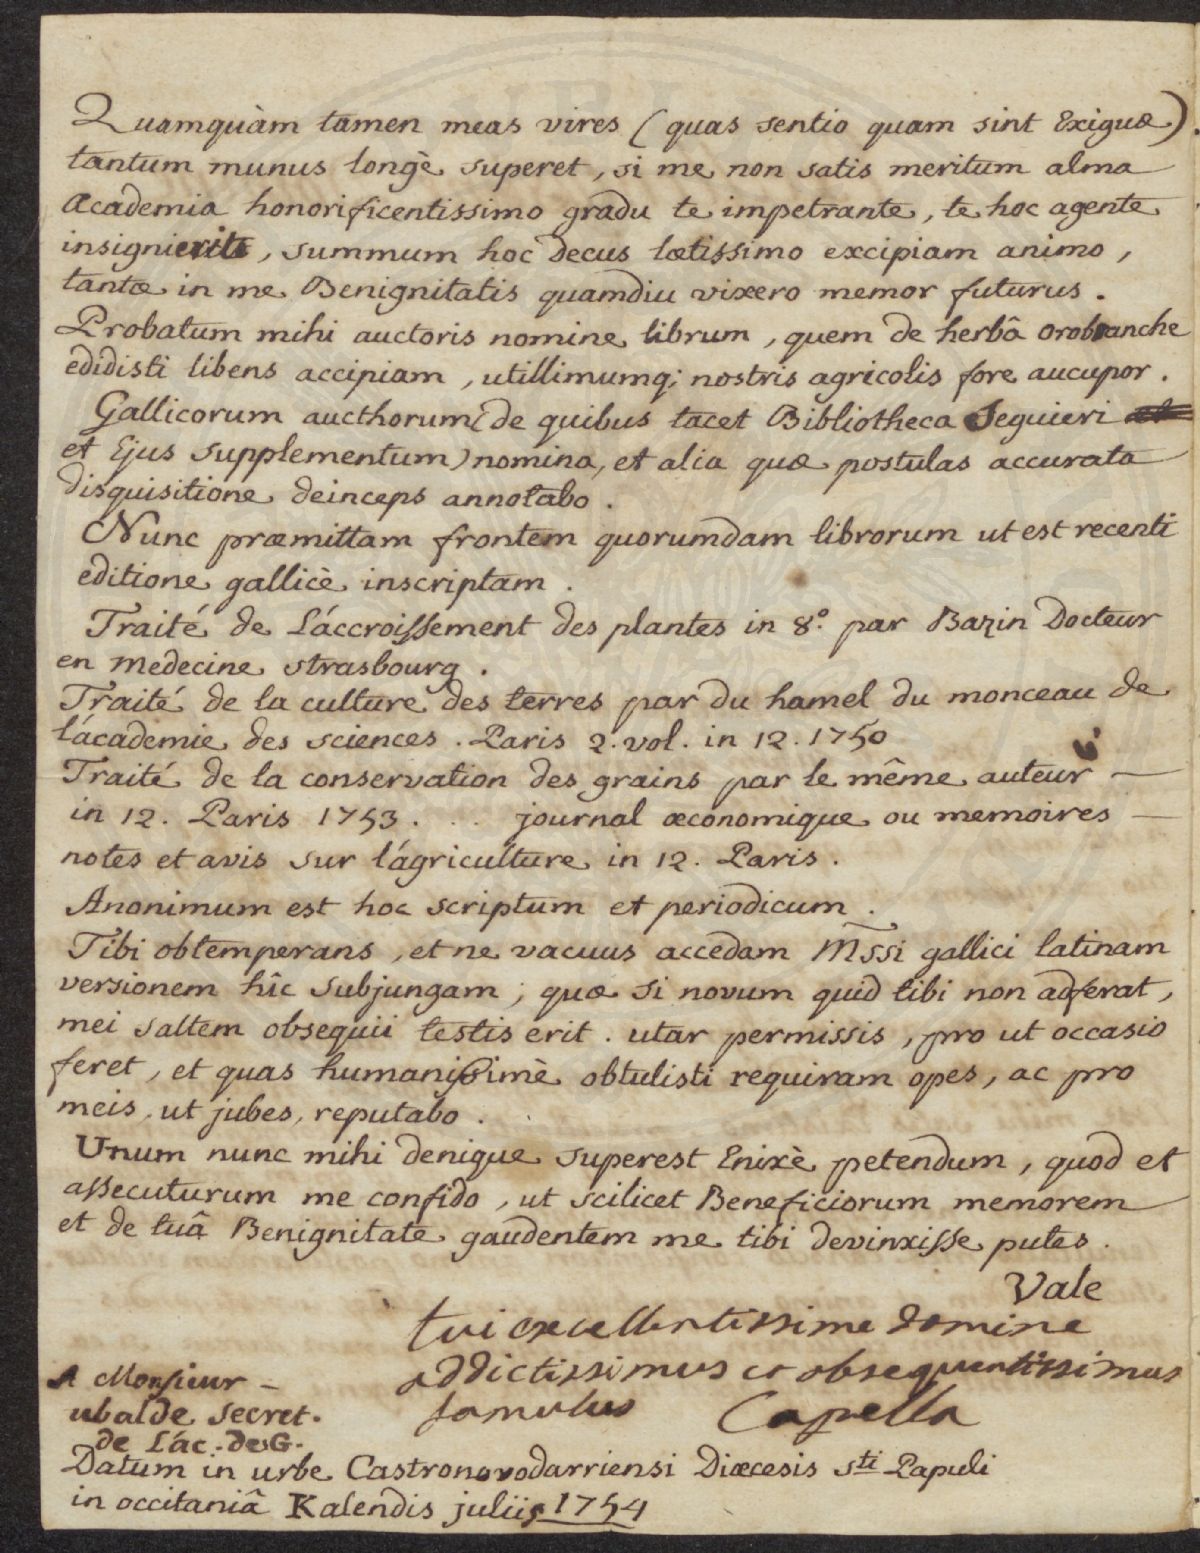 Quamquàm tamen meas vires (quas sentio quam sint Exiguæ)
tantum munus longè superet, si me non satis meritum alma
Academia honorificentissimo gradu te impetrante, te hoc agente
insignierit, summum hoc Decus lætissimo excipiam animo,
tantæ in me Benignitatis quamdiu vixero memor futurus.
Probatum mihi auctoris nomine librum, quem de herbâ orobanche
edidisti libens accipiam, utillimumq; nostris agricolis fore aucupor.
Gallicorum aucthorum (de quibus tacet Bibliotheca Seguieri
et Ejus supplementum) nomina, et alia quæ postulas accurata
disquisitione deinceps annotabo.
Nunc præmittam frontem quorumdam librorum ut est recenti
editione gallicè inscriptam.
Traité de L'áccroissement des plantes in 8.º par Bazin Docteur
en medecine strasbourg.
Traité de la culture des terres par du hamel du monceau de
l'académie des sciences. Paris 2. vol. in 12. 1750
Traité de la conservation des grains par le même auteur —
in 12. Paris 1753. . . journal œconomique ou memoires —
notes et avis sur l'ágriculture in 12. Paris.
Anonimum est hoc scriptum et periodicum.
Tibi obtemperans, et ne vacuus accedam Mssi gallici latinam
versionem hîc subjungam; quæ si novum quid tibi non adferat,
mei saltem obsequii testis erit. utar permissis, pro ut occasio
feret, et quas humanissimè obtulisti requiram opes, ac pro
meis, ut jubes, reputabo.
Unum nunc mihi denique superest Enixè petendum, quod et
assecuturum me confido, ut scilicet Beneficiorum memorem
et de tuâ Benignitate gaudentem me tibi devinxisse putes.
Vale
tui excellentissime domine
addictissimus et obsequentissimus
famulus Capella
A Monsieur —
ubalde secret.
de L'ác. de G.
Datum in urbe Castronovodarriensi Diœcesis sti Papuli
in occitaniâ Kalendis juliis 1754